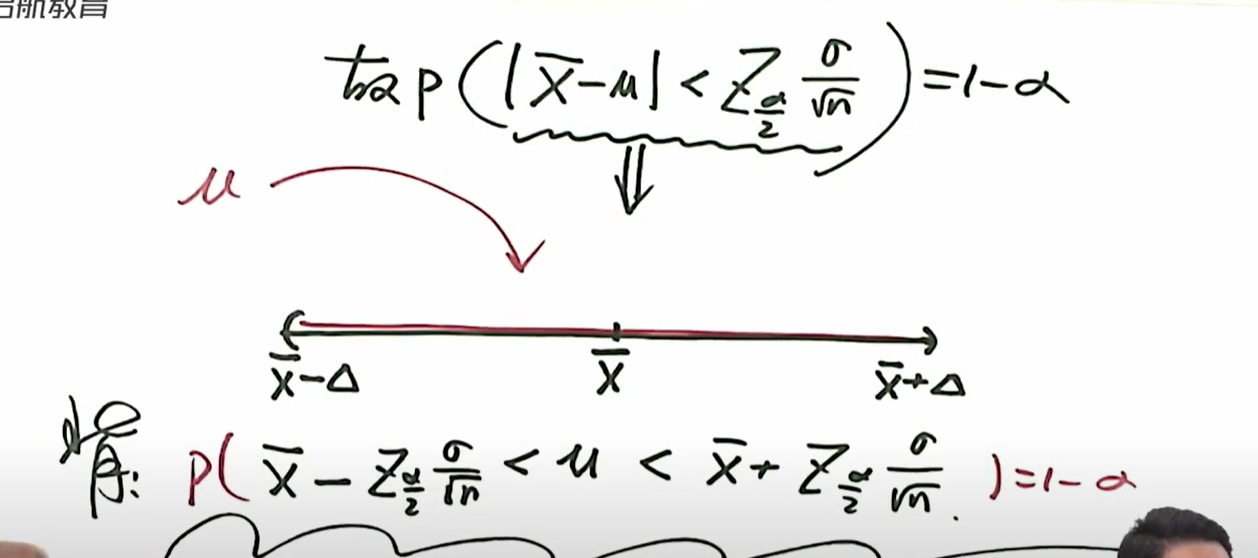 启航教育
故 P(|X̄-μ| < Z_{α/2} σ/√n) = 1-α
⇓
μ
X̄-Δ X̄ X̄+Δ
背: P( X̄ - Z_{α/2} σ/√n < μ < X̄ + Z_{α/2} σ/√n ) = 1-α